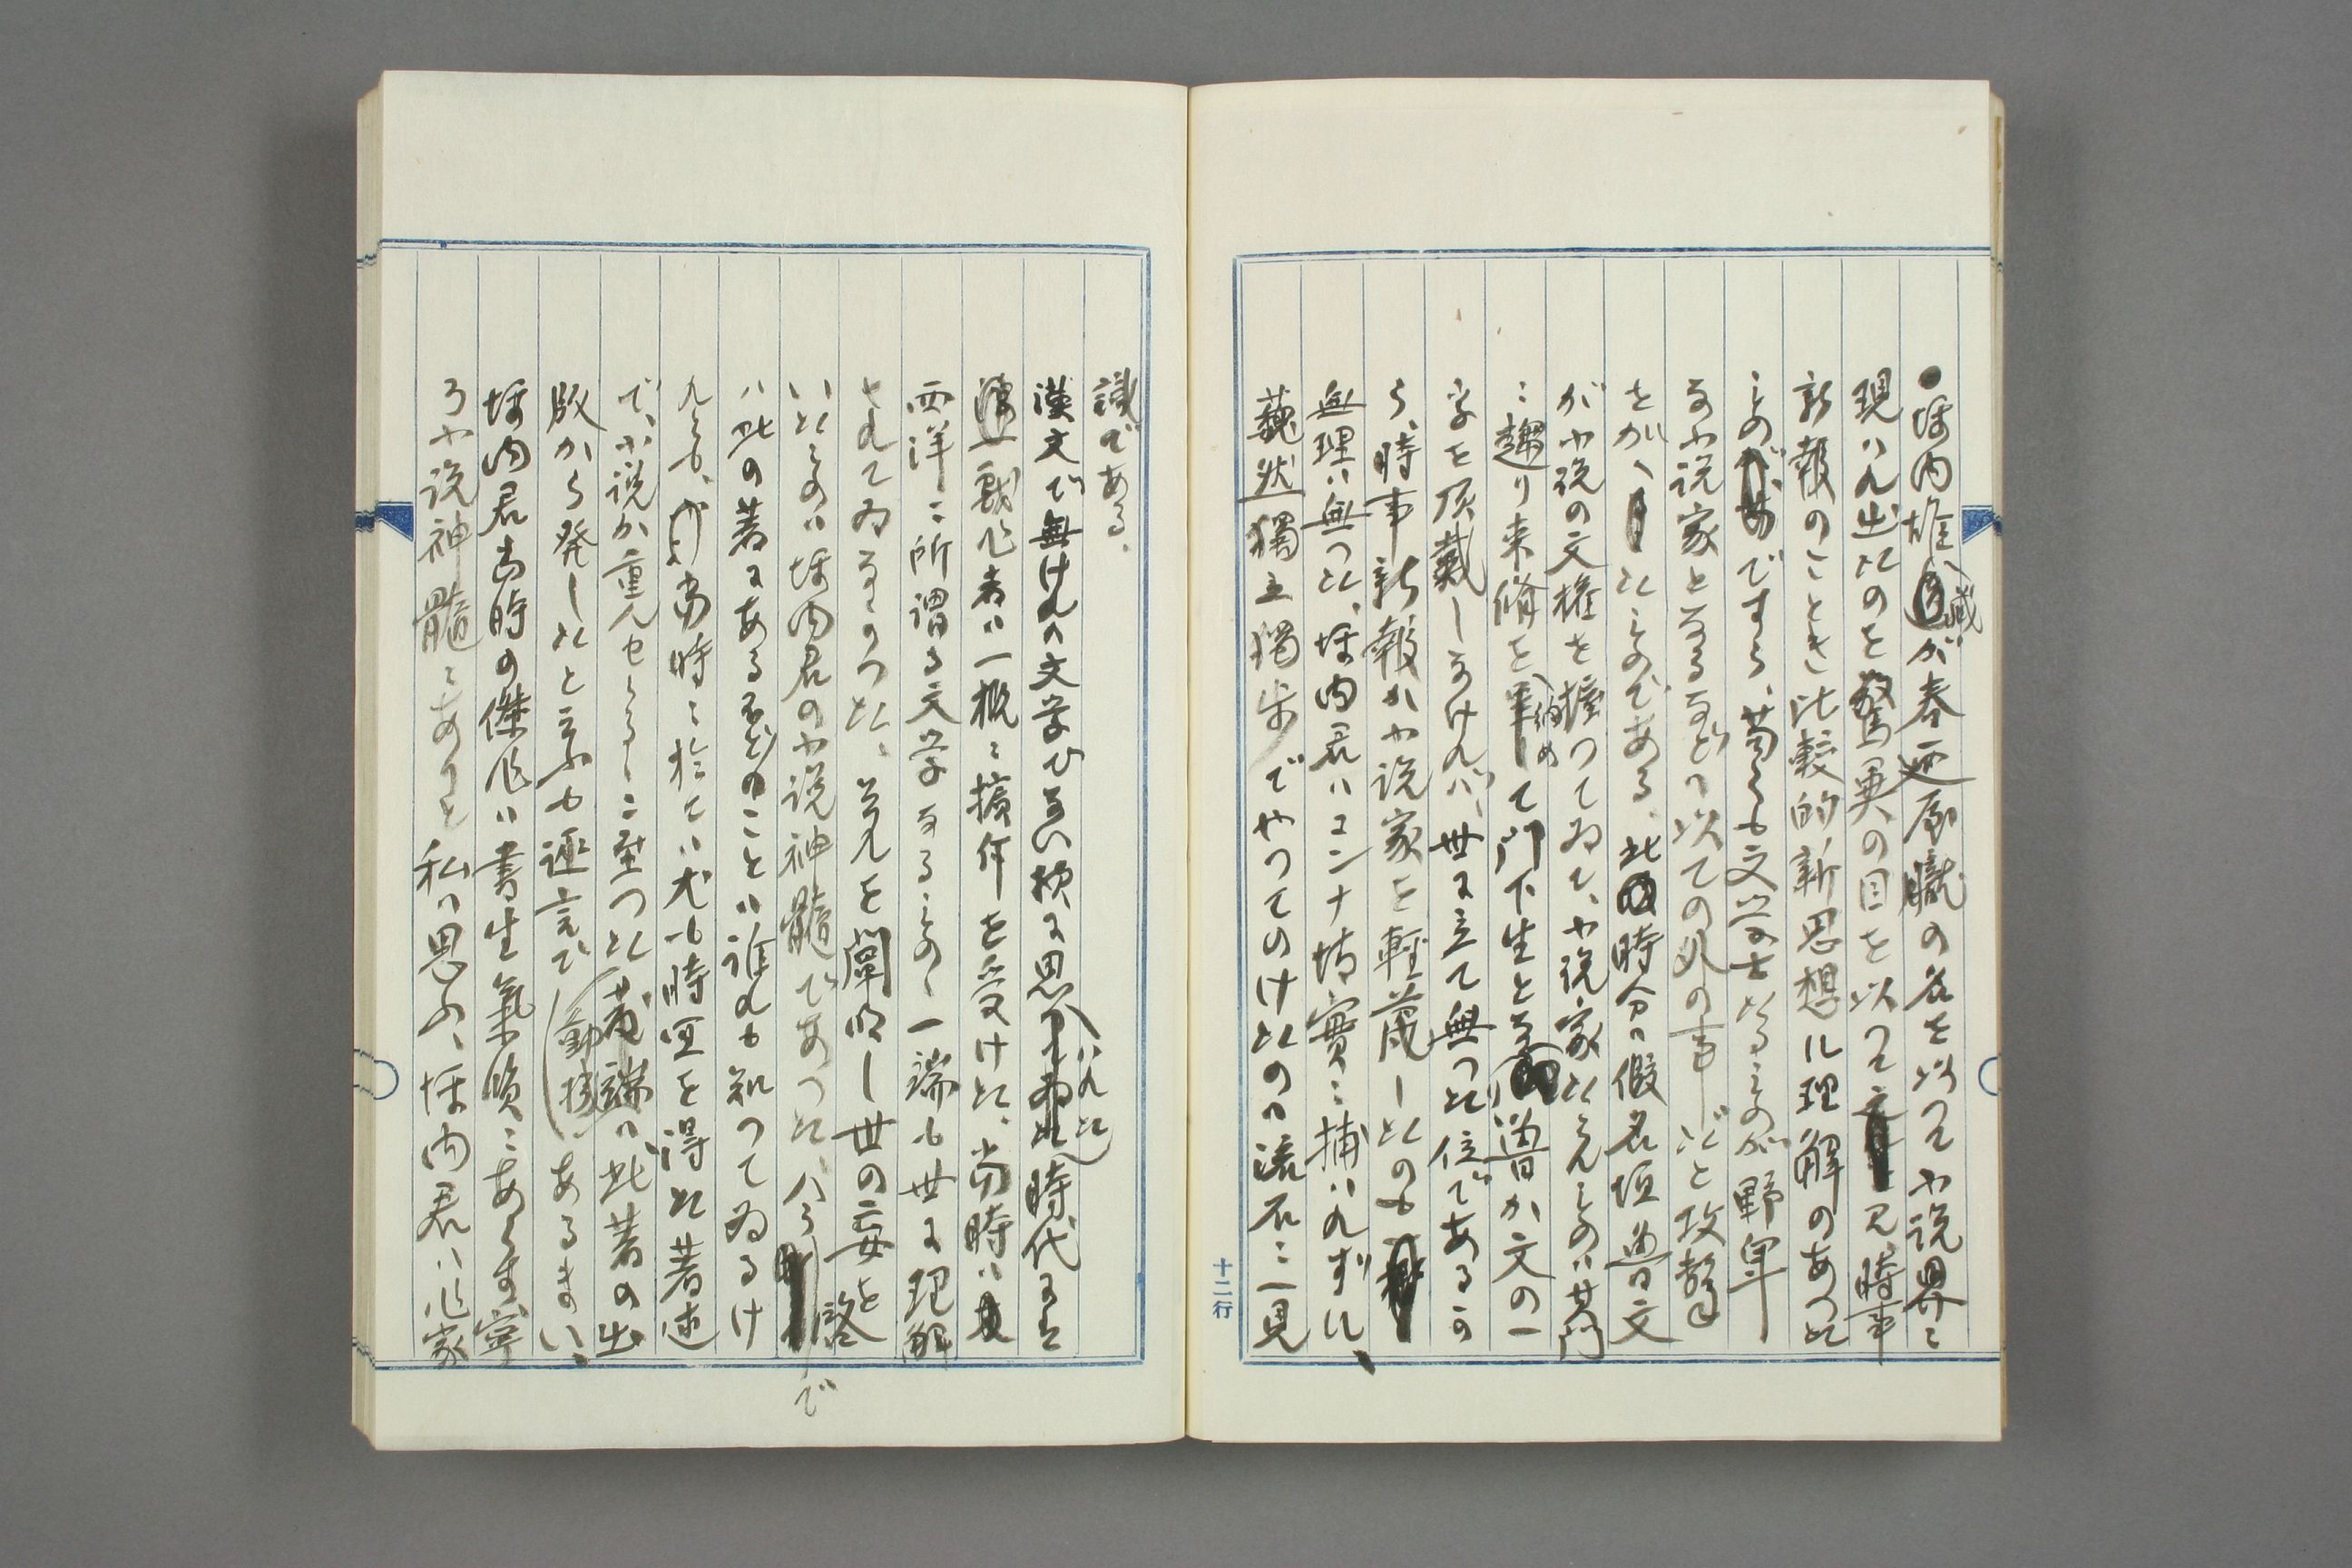 ●坪内雄藏が春廼屋朧の名を以つて小説界ニ
現ハれ出たのを驚異の目を以つて見、時事
新報のごとき比較的新思想に理解のあつた
ものですら、苟くも文学士たるものが野卑
な小説家となるなどハ以ての外の事だと攻撃
をかいたものである。此時分ハ假名垣魯文
が小説の文権を握つてゐて、小説家たらんものハ其門
ニ趨り束脩を納めて門下生となり魯か文の一
字を頂戴しなければ、世に立て無つた位であるか
ら、時事新報か小説家を軽蔑したのも
無理ハ無つた、坪内君ハコンナ情實ニ捕ハれずに、
巍然獨立獨歩でやつてのけたのハ流石ニ一見
識である。
漢文で無けれハ文学でない様に思ハれた時代に
戯作者ハ一概ニ擯斥を受けた、当時ハ
西洋ニ所謂る文学なるもの一端も世に理解
されてゐなかつた、是れを闡明し世の妄を啓
いたものハ坪内君の小説神髄であつた、今で
ハ此の著にある多どのことハ誰れも知つてゐるけ
れども、当時ニ於てハ尤も時宜を得た著述
で、小説か重んせらるるニ至つた発端ハ、此著の出
版から発したと云ふも過言で(動機)あるまい、
坪内君当時の傑作ハ書生氣質ニあらす寧
ろ小説神髄ニありと私ハ思ふ、坪内君ハ作家
十二行